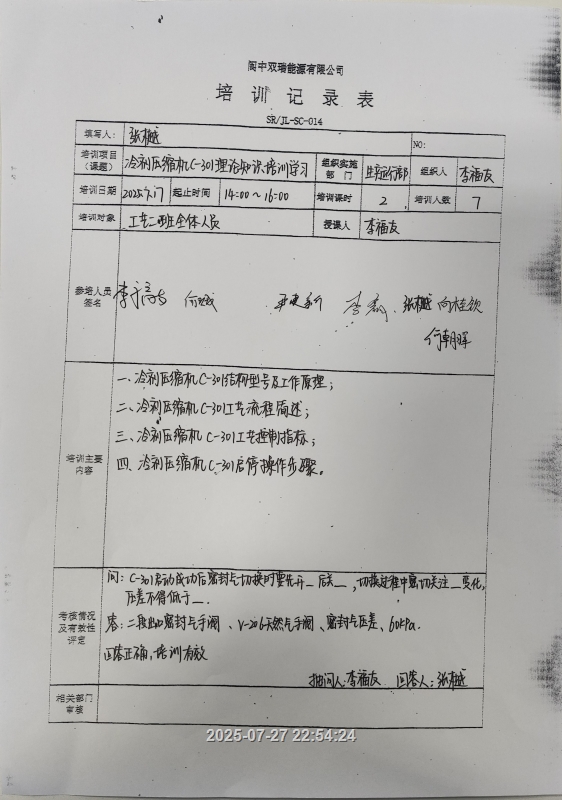 阆中双瑞能源有限公司
培 训 记 录 表
SR/JL-SC-014
填写人: 张樾 NO:
培训项目(课题) 冷剂压缩机C-301理论知识培训学习 组织实施部 门 生产运行部 组织人 李福友
培训日期 2025.7.17 起止时间 14:00～16:00 培训课时 2 培训人数 7
培训对象 工艺二班全体人员 授课人 李福友
参培人员签名 张樾 向桂钦
何朝晖
培训主要内容
一、冷剂压缩机C-301结构型号及工作原理;
二、冷剂压缩机C-301工艺流程简述;
三、冷剂压缩机C-301工艺控制指标;
四、冷剂压缩机C-301启停操作步骤。
考核情况及有效性评定
问: C-301启动成功后密封气切换时要先开_后关_,切换过程中密切关注_变化,
压差不得低于_.
答: 二段出口密封气手阀、V-206天然气手阀、密封气压差、60kPa.
回答正确,培训有效
抽问人:李福友 回答人:张樾
相关部门审核
2025-07-27 22:54:24